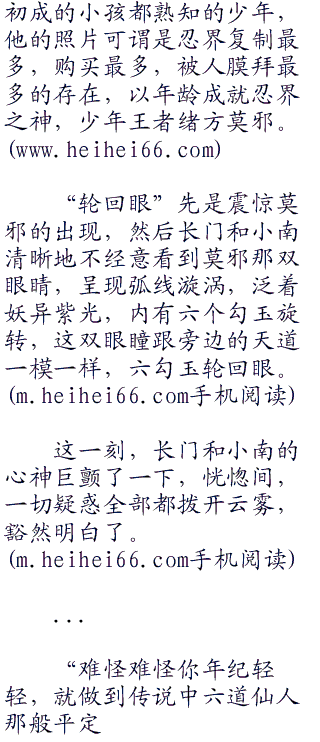 初成的小孩都熟知的少年，
他的照片可谓是忍界复制最
多，购买最多，被人膜拜最
多的存在，以年龄成就忍界
之神，少年王者绪方莫邪。
(www.heihei66.com)
“轮回眼”先是震惊莫
邪的出现，然后长门和小南
清晰地不经意看到莫邪那双
眼睛，呈现弧线漩涡，泛着
妖异紫光，内有六个勾玉旋
转，这双眼瞳跟旁边的天道
一模一样，六勾玉轮回眼。
(m.heihei66.com手机阅读)
这一刻，长门和小南的
心神巨颤了一下，恍惚间，
一切疑惑全部都拨开云雾，
豁然明白了。
(m.heihei66.com手机阅读)
...
“难怪难怪你年纪轻
轻，就做到传说中六道仙人
那般平定